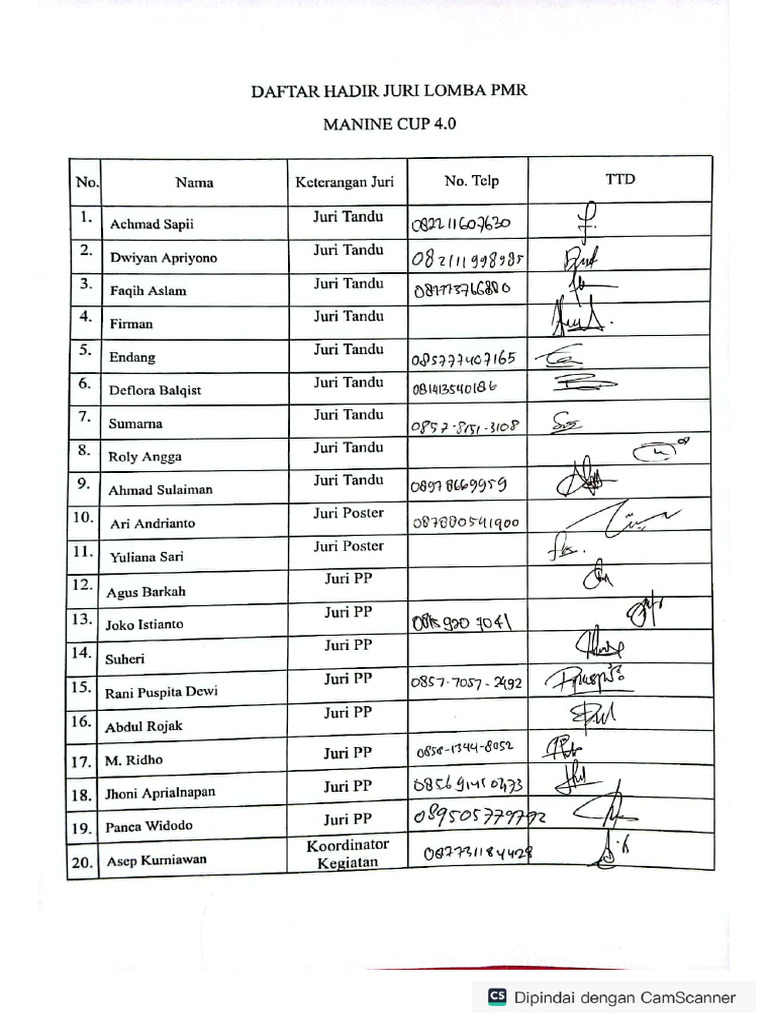 DAFTAR HADIR JURI LOMBA PMR
MANINE CUP 4.0
No. Nama Keterangan Juri No. Telp TTD
1. Achmad Sapii Juri Tandu 082211607630
2. Dwiyan Apriyono Juri Tandu 082111998985
3. Faqih Aslam Juri Tandu
4. Firman Juri Tandu
5. Endang Juri Tandu 085777407165
6. Deflora Balqist Juri Tandu 081413540186
7. Sumarna Juri Tandu 0857-8151-3108
8. Roly Angga Juri Tandu
9. Ahmad Sulaiman Juri Tandu 08978669959
10. Ari Andrianto Juri Poster 087880541900
11. Yuliana Sari Juri Poster
12. Agus Barkah Juri PP
13. Joko Istianto Juri PP
14. Suheri Juri PP
15. Rani Puspita Dewi Juri PP 0857-7057-2492
16. Abdul Rojak Juri PP
17. M. Ridho Juri PP 0858-1344-8052
18. Jhoni Aprialnapan Juri PP
19. Panca Widodo Juri PP 089505779792
20. Asep Kurniawan Koordinator Kegiatan 087731184428
CS Dipindai dengan CamScanner